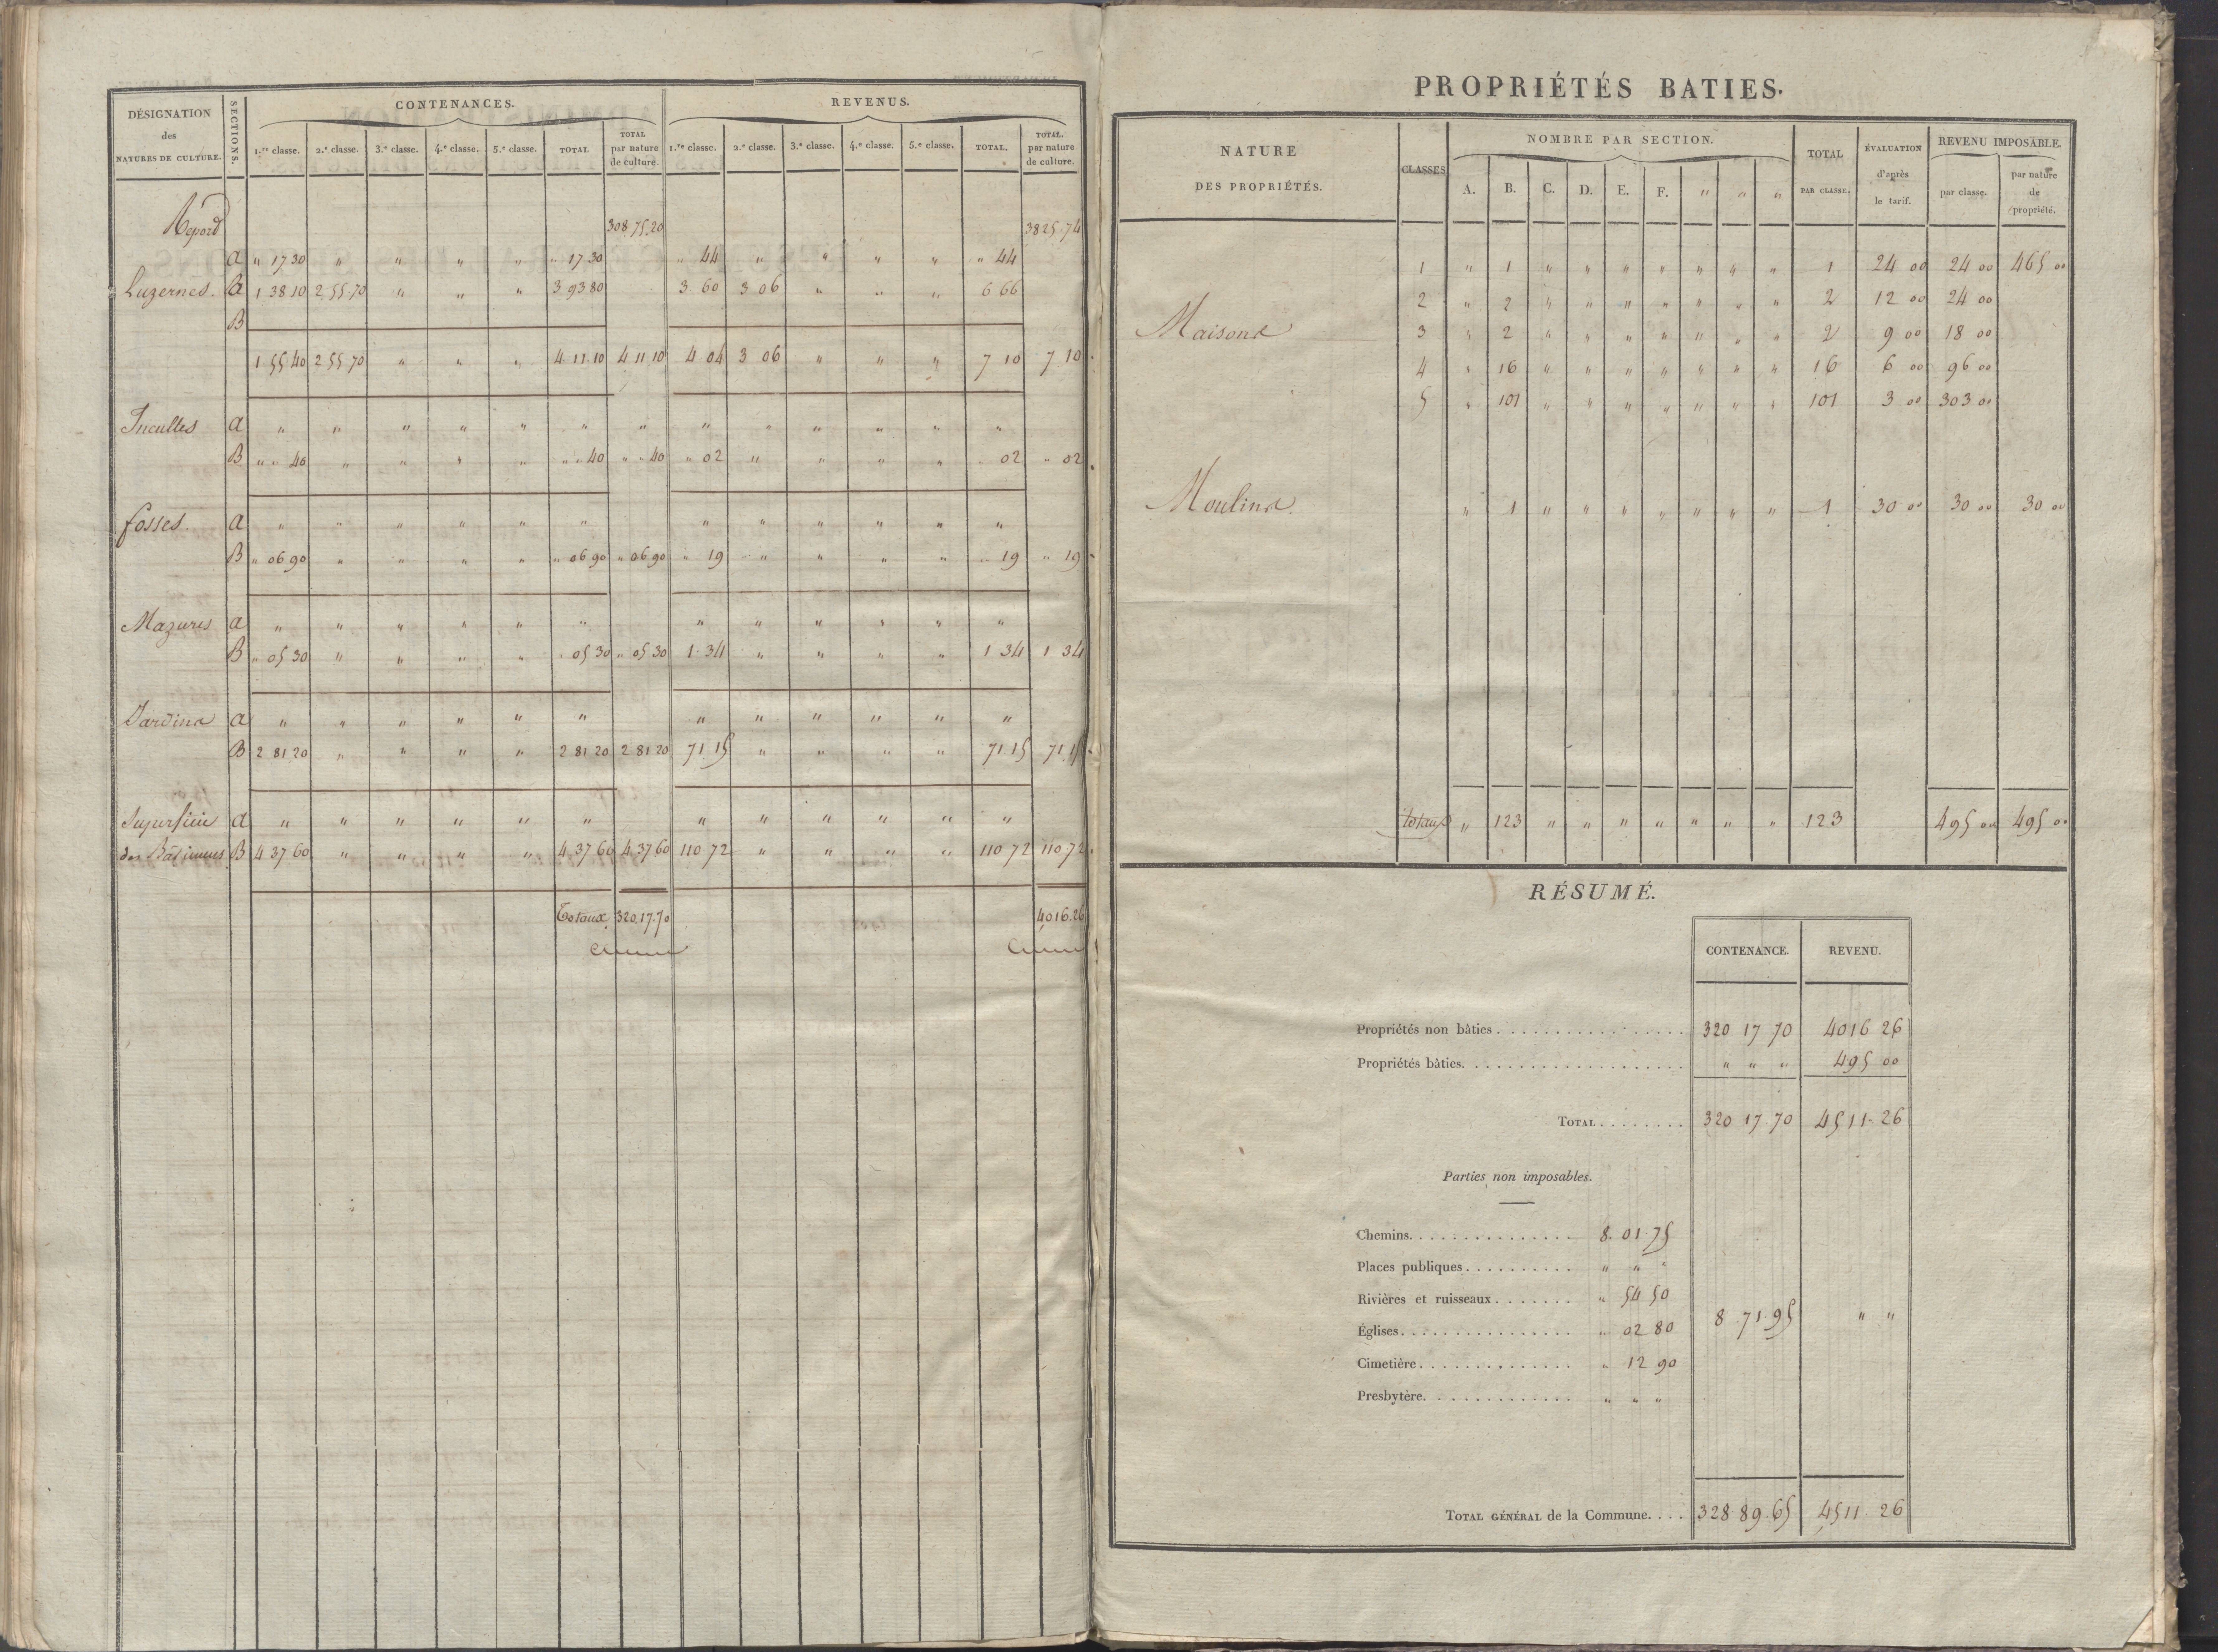 DÉSIGNATION des NATURES DE CULTURE. SECTIONS. CONTENANCES. REVENUS.
1.re classe. 2.e classe. 3.e classe. 4.e classe. 5.e classe. TOTAL TOTAL par nature de culture. 1.re classe. 2.e classe. 3.e classe. 4.e classe. 5.e classe. TOTAL. TOTAL. par nature de culture.
Report 308.75.20 3825.74
a " 17 30 " " " " " 17.30 " 44 " " " " " 44
Luzernes. a 1 38 10 2.55.70 " " " 3 93 80 3 60 3 06 " " " 6 66
B
1.55.40 2.55.70 " " " 4.11.10 4.11.10 4 04 3 06 " " " 7 10 7.10
Incultes a " " " " " " " " " " " " "
B " " 40 " " " " " " 40 " " 40 " 02 " " " " " 02 " 02
fosses. a " " " " " " " " " " " "
B " 06 90 " " " " " 06 90 " 06 90 " 19 " " " " " 19 " 19
Mazures a " " " " " " " " " " " "
B " 05 30 " " " " " 05 30 " 05 30 1.34 " " " " 1 34 1 34
Jardins a " " " " " " " " " " " "
B 2 81 20 " " " " 2 81 20 2 81 20 71.15 " " " " 71.15 71.15
Superficie a " " " " " " " " " " " "
des Bâtimens B 4 37 60 " " " " 4.37 60 4.37 60 110 72 " " " " 110 72 110.72
Totaux 320.17.70 4016.26
PROPRIÉTÉS BATIES.
NATURE DES PROPRIÉTÉS. CLASSES NOMBRE PAR SECTION. TOTAL PAR CLASSE. ÉVALUATION d'après le tarif. REVENU IMPOSABLE.
A. B. C. D. E. F. " " " par classe. par nature de propriété.
1 " 1 " " " " " " " 1 24 00 24 00 465 00
2 " 2 " " " " " " " 2 12 00 24 00
Maisons 3 " 2 " " " " " " " 2 9 00 18 00
4 " 16 " " " " " " " 16 6 00 96 00
5 " 101 " " " " " " " 101 3 00 303 00
Moulins. " 1 " " " " " " " 1 30 00 30 00 30 00
totaux " 123 " " " " " " " 123 495 00 495 00
RÉSUMÉ.
CONTENANCE. REVENU.
Propriétés non bâties . . . . . . . . 320 17 70 4016 26
Propriétés bâties. . . . . . . . . " " " 495 00
TOTAL . . . . . . . . 320 17.70 4511.26
Parties non imposables.
Chemins. . . . . . . . 8. 01.75
Places publiques . . . . . . . . " " "
Rivières et ruisseaux . . . . . . . " 54 50
8.71.95 " "
Églises. . . . . . . . " 02 80
Cimetière . . . . . . . . " 12 90
Presbytère. . . . . . . . " " "
TOTAL GÉNÉRAL de la Commune. . . . 328.89.65 4511.26